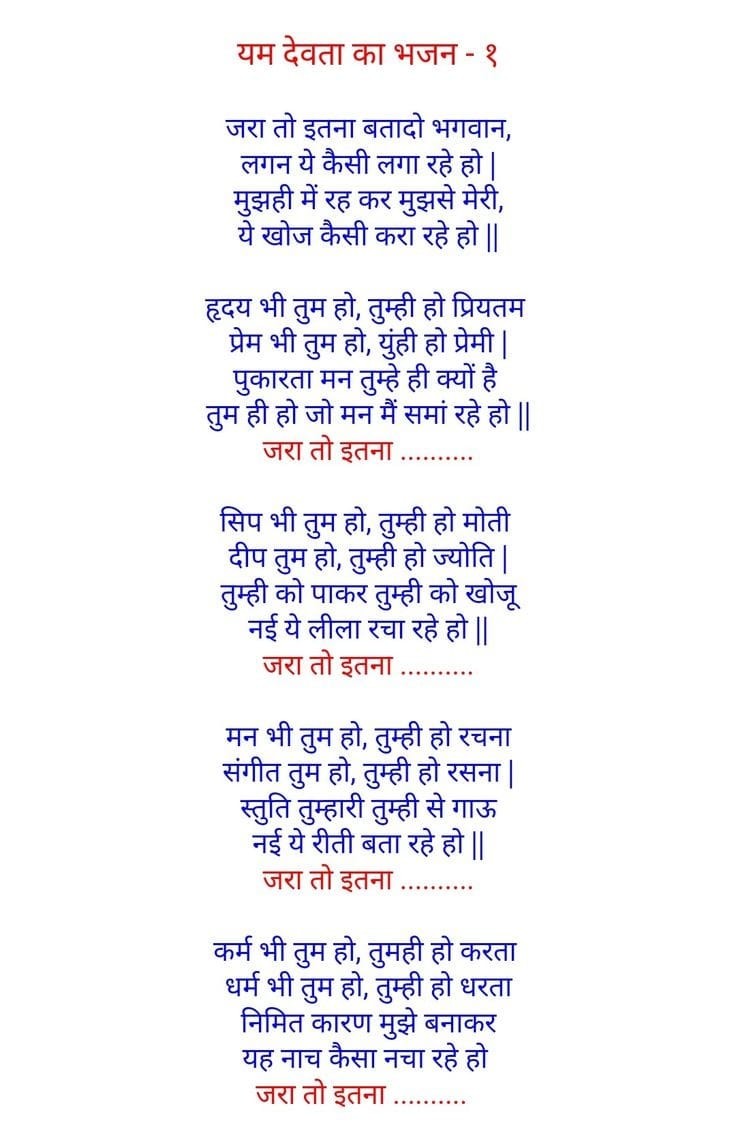 यम देवता का भजन - १
जरा तो इतना बतादो भगवान,
लगन ये कैसी लगा रहे हो |
मुझही में रह कर मुझसे मेरी,
ये खोज कैसी करा रहे हो ||
हृदय भी तुम हो, तुम्ही हो प्रियतम
प्रेम भी तुम हो, युंही हो प्रेमी |
पुकारता मन तुम्हे ही क्यों है
तुम ही हो जो मन मैं समां रहे हो ||
जरा तो इतना ..........
सिप भी तुम हो, तुम्ही हो मोती
दीप तुम हो, तुम्ही हो ज्योति |
तुम्ही को पाकर तुम्ही को खोजू
नई ये लीला रचा रहे हो ||
जरा तो इतना ..........
मन भी तुम हो, तुम्ही हो रचना
संगीत तुम हो, तुम्ही हो रसना |
स्तुति तुम्हारी तुम्ही से गाऊ
नई ये रीती बता रहे हो ||
जरा तो इतना ..........
कर्म भी तुम हो, तुमही हो करता
धर्म भी तुम हो, तुम्ही हो धरता
निमित कारण मुझे बनाकर
यह नाच कैसा नचा रहे हो
जरा तो इतना ..........